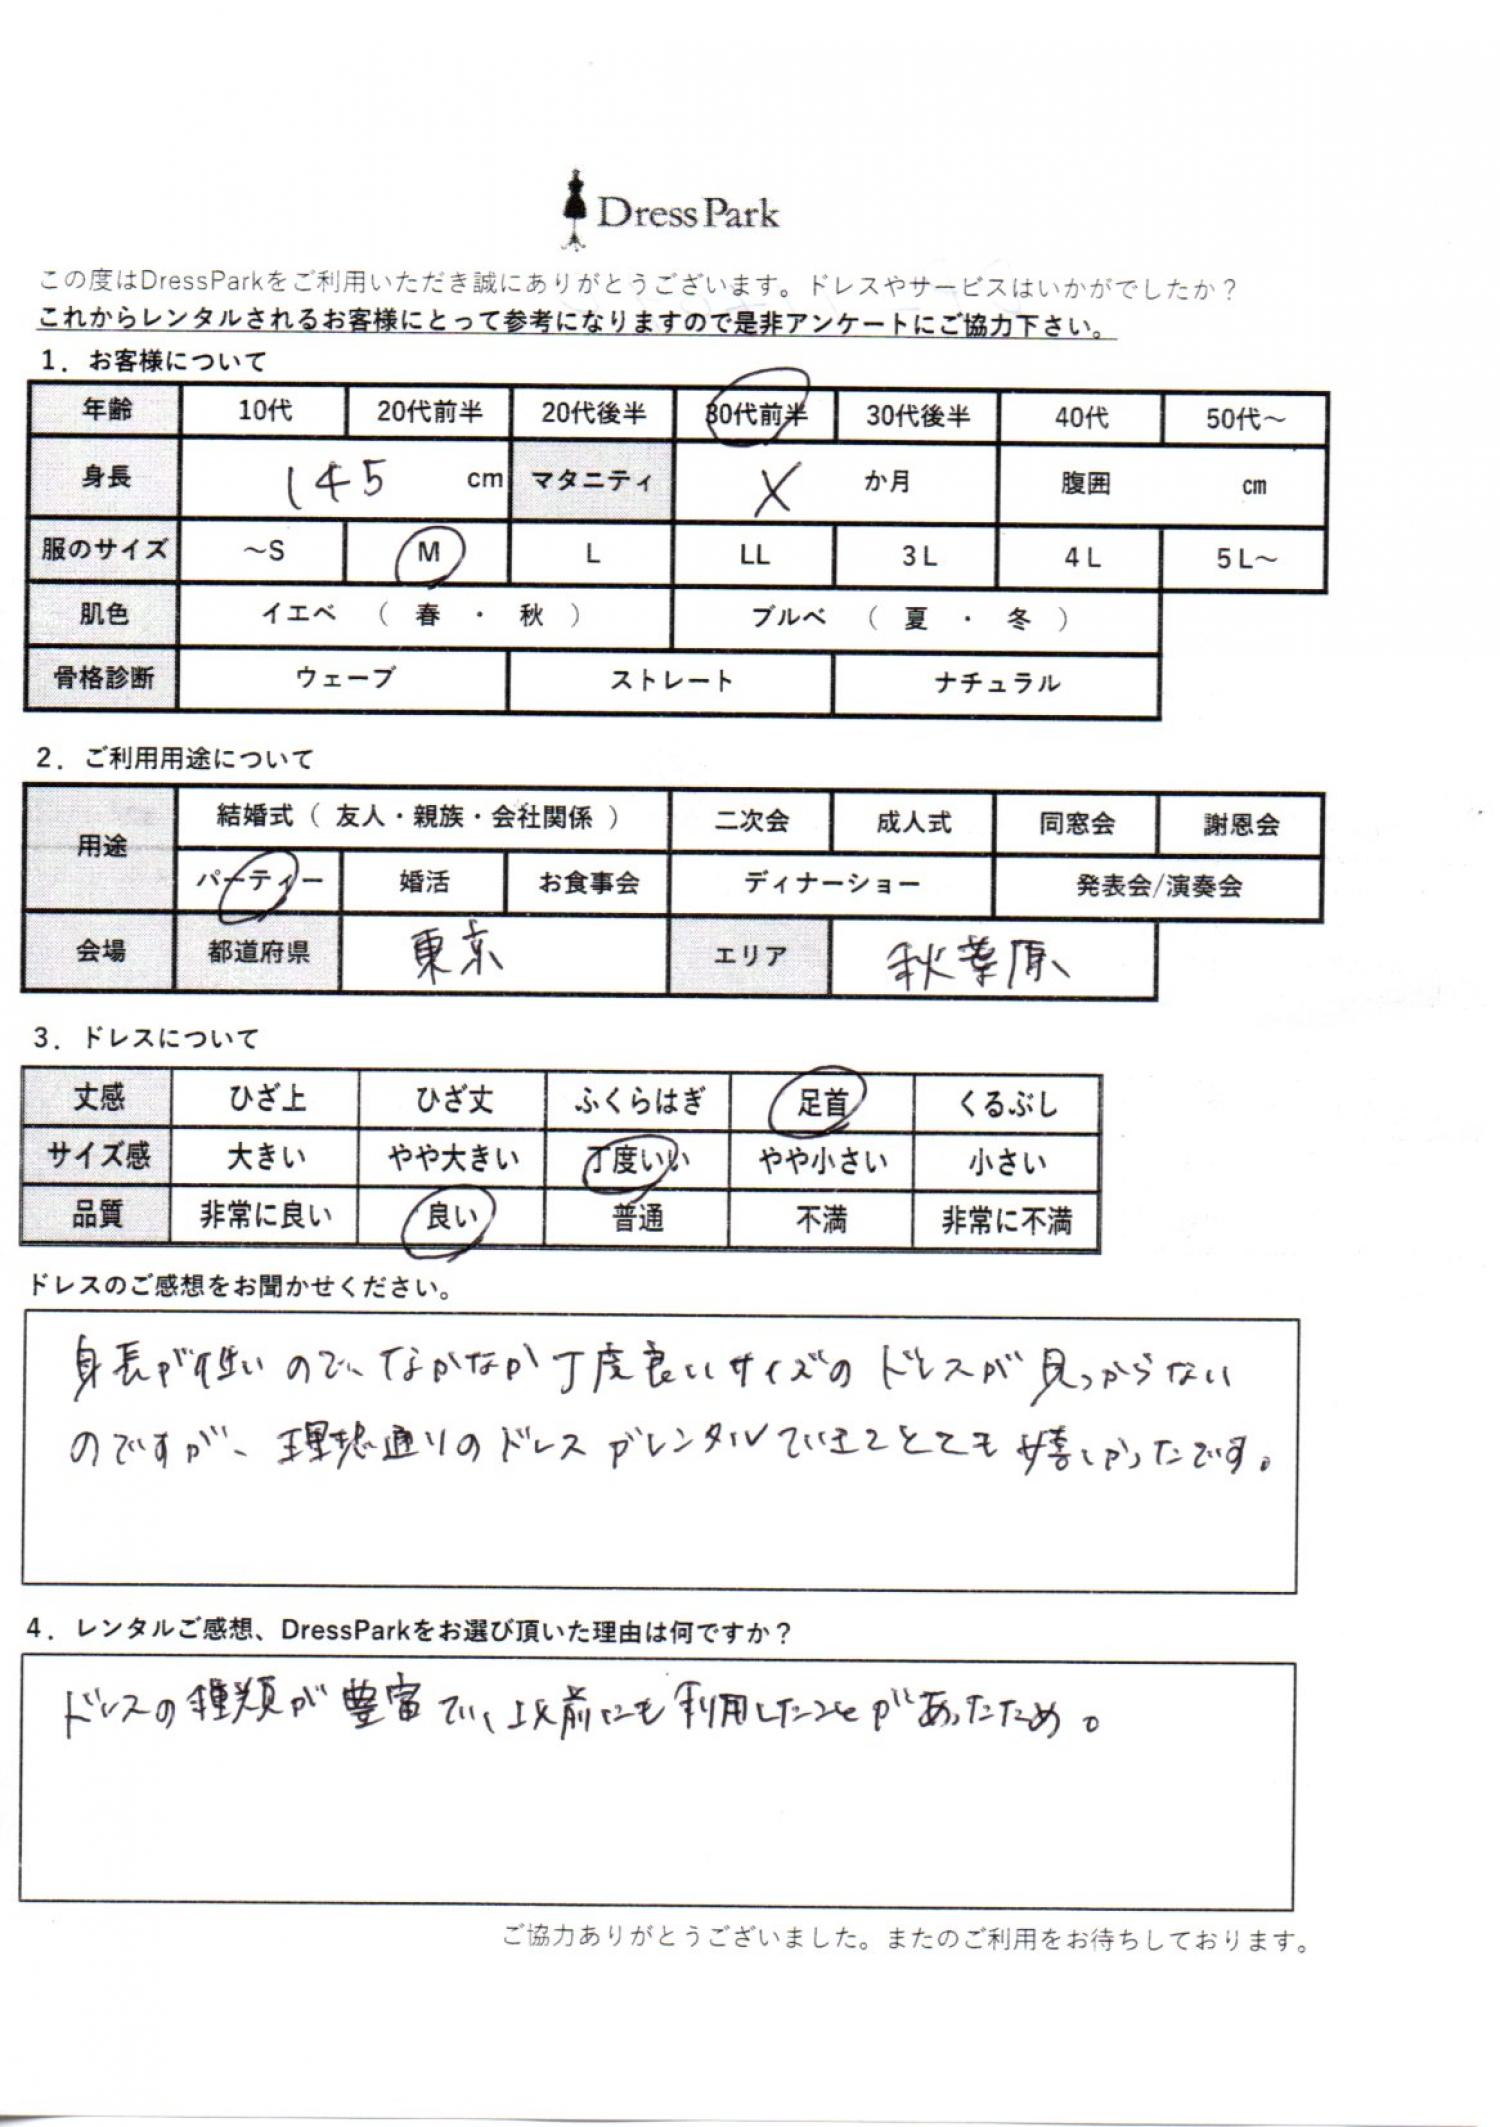 DressPark
この度はDressParkをご利用いただき誠にありがとうございます。ドレスやサービスはいかがでしたか？
これからレンタルされるお客様にとって参考になりますので是非アンケートにご協力下さい。
1．お客様について
年齢 10代 20代前半 20代後半 30代前半 30代後半 40代 50代～
身長 145 cm マタニティ X か月 腹囲 ㎝
服のサイズ ～S M L LL 3L 4L 5L～
肌色 イエベ （ 春 ・ 秋 ） ブルベ （ 夏 ・ 冬 ）
骨格診断 ウェーブ ストレート ナチュラル
2．ご利用用途について
用途 結婚式（ 友人・親族・会社関係 ） 二次会 成人式 同窓会 謝恩会
パーティー 婚活 お食事会 ディナーショー 発表会/演奏会
会場 都道府県 東京 エリア 秋葉原
3．ドレスについて
丈感 ひざ上 ひざ丈 ふくらはぎ 足首 くるぶし
サイズ感 大きい やや大きい 丁度いい やや小さい 小さい
品質 非常に良い 良い 普通 不満 非常に不満
ドレスのご感想をお聞かせください。
身長が低いので、なかなか丁度良いサイズのドレスが見つからない
のですが、理想通りのドレスがレンタルできてとても嬉しかったです。
4．レンタルご感想、DressParkをお選び頂いた理由は何ですか？
ドレスの種類が豊富で、以前にも利用したことがあったため。
ご協力ありがとうございました。またのご利用をお待ちしております。